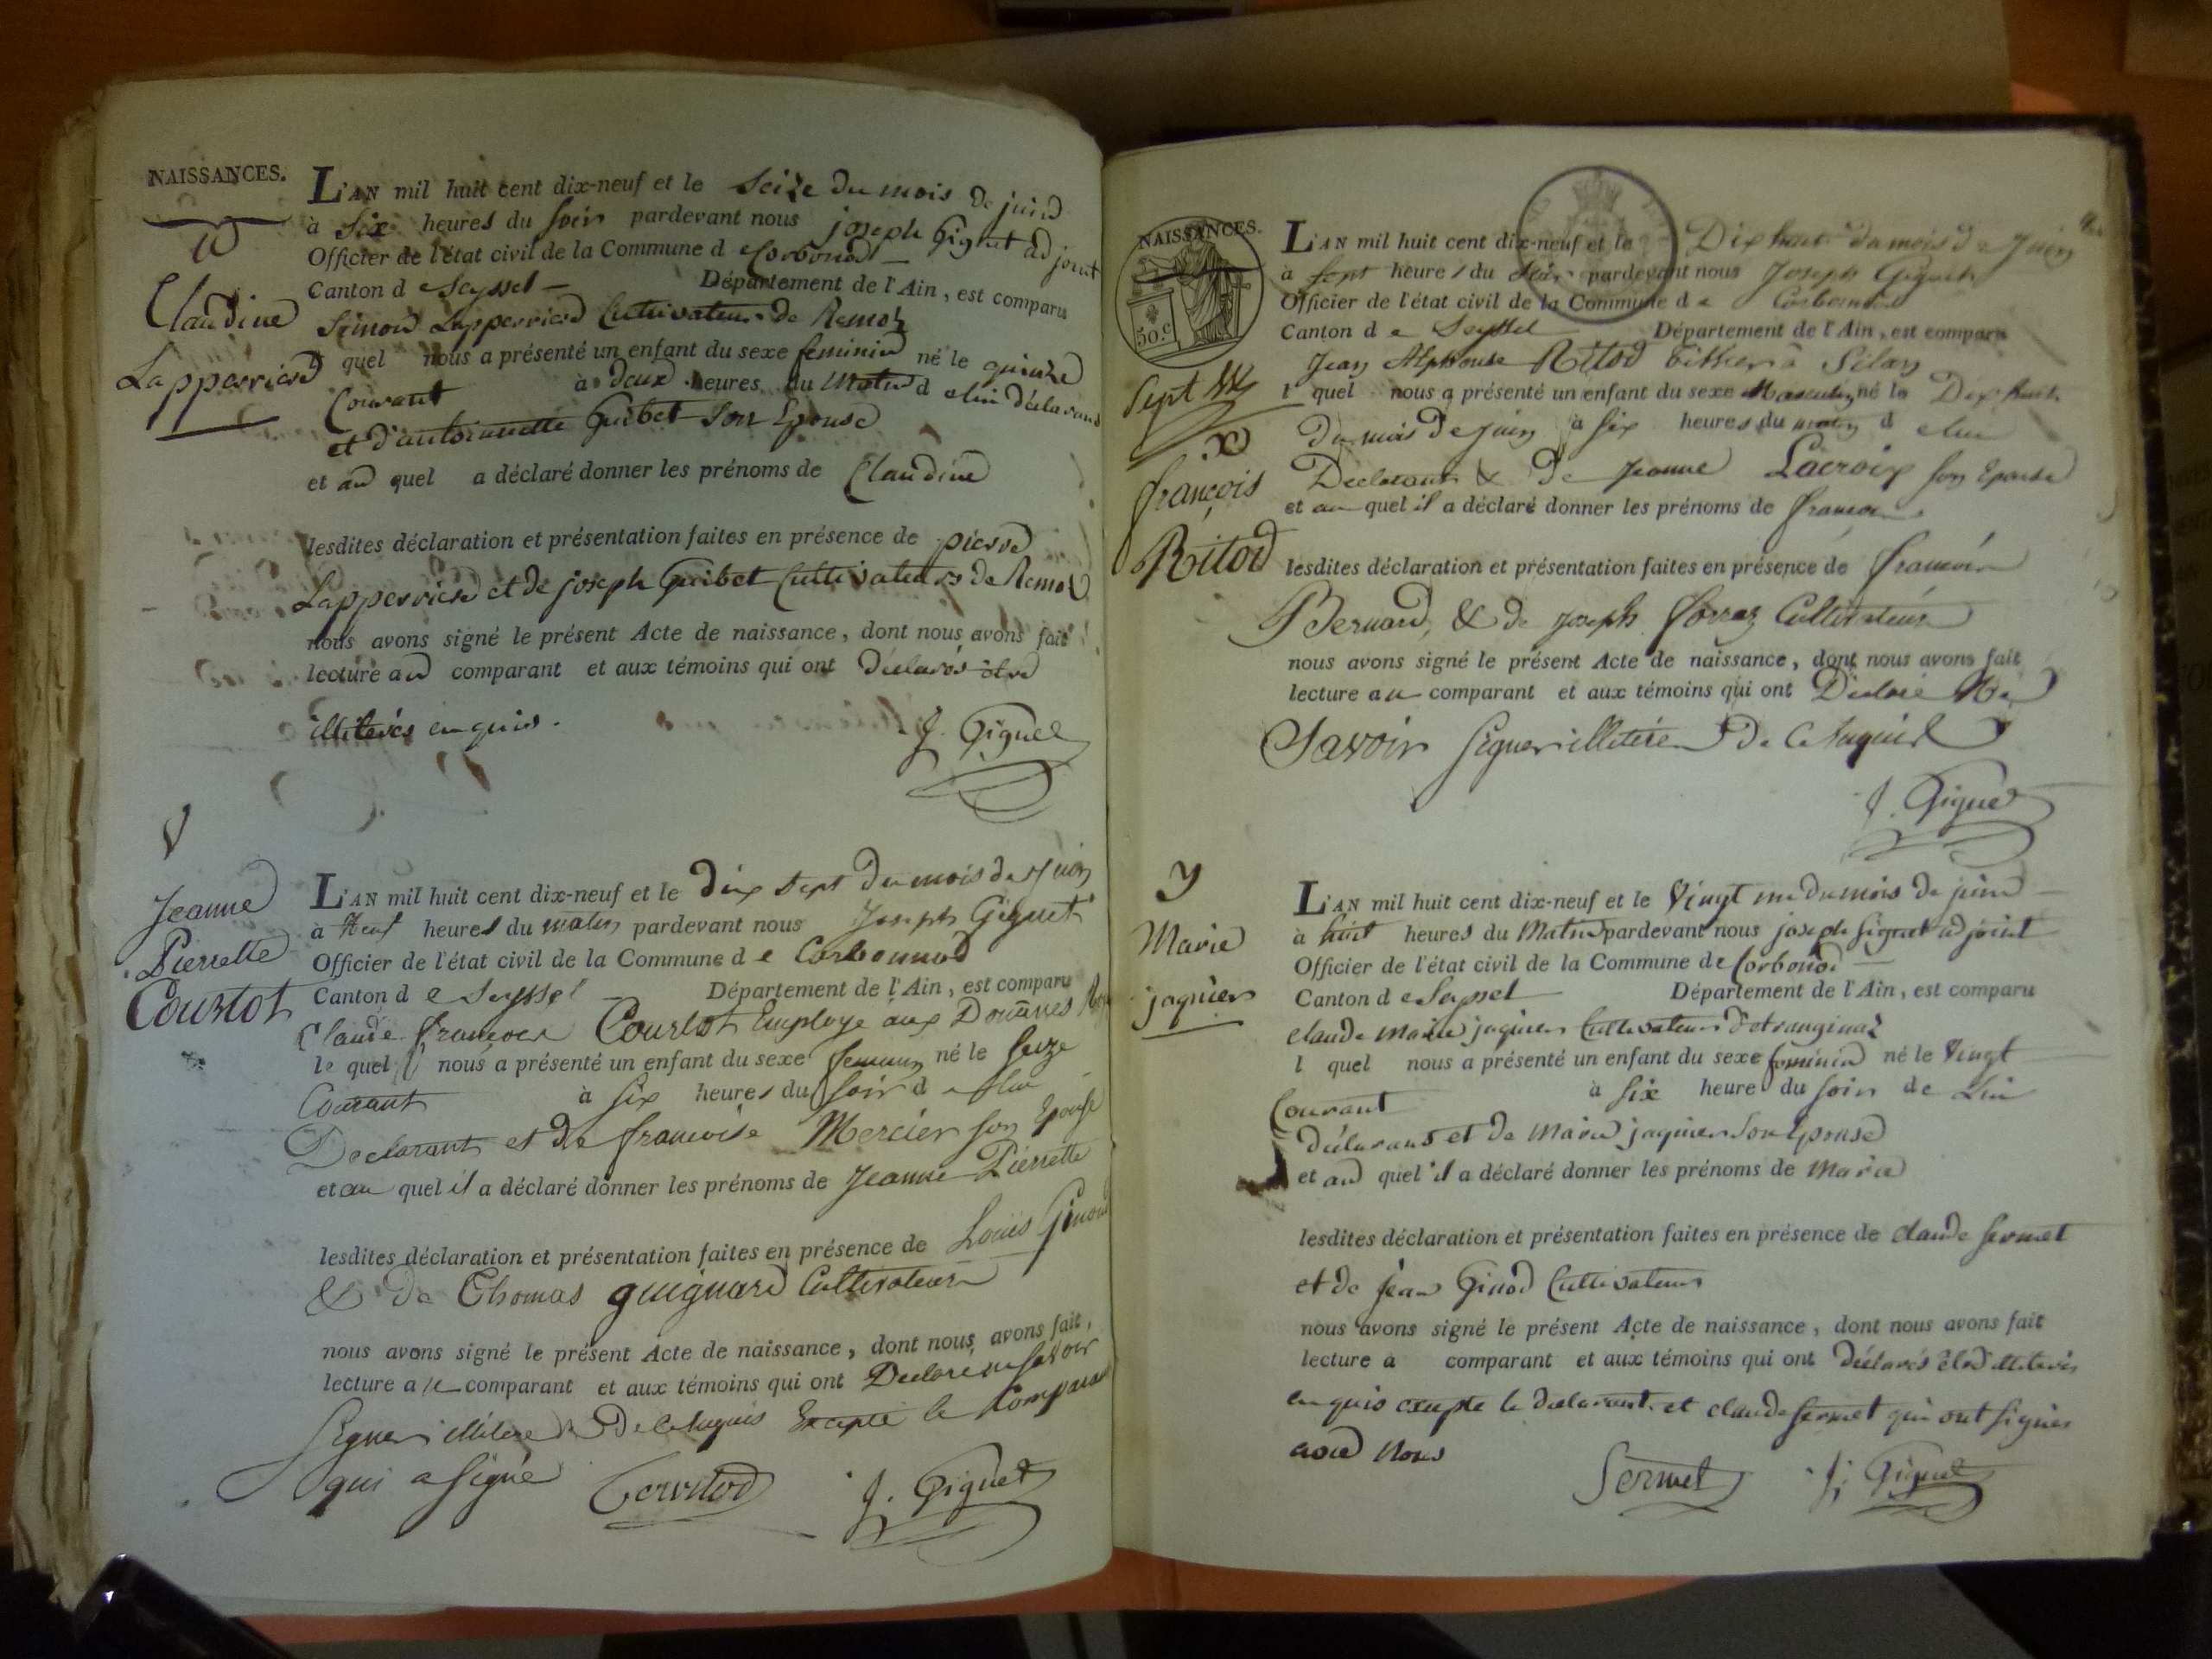 NAISSANCES.
Claudine
Lapperriere
L'AN mil huit cent dix-neuf et le Seize du mois de juin
à Six heures du Soir pardevant nous joseph Giguet adjoint
Officier de l'état civil de la Commune de Corbonod
Canton de Seyssel Département de l'Ain, est comparu
Simond Lapperriere Cultivateur de Remoz
quel nous a présenté un enfant du sexe feminin né le quinze
Courant à deux heures du Matin de lui déclarant
et d'antoinette Guibet Son Epouse
et au quel a déclaré donner les prénoms de Claudine
lesdites déclaration et présentation faites en présence de pierre
Lapperriere et de joseph Guibet Cultivateurs de Remoz
nous avons signé le présent Acte de naissance, dont nous avons fait
lecture au comparant et aux témoins qui ont déclarés être
illiterés enquis.
J. Giguet
Jeanne
Pierrette
Courtot
L'AN mil huit cent dix-neuf et le dix sept du mois de Juin
à Neuf heures du matin pardevant nous Joseph Giguet
Officier de l'état civil de la Commune de Corbonnod
Canton de Seyssel Département de l'Ain, est comparu
Claude françois Courtot Employe aux Douanes
le quel nous a présenté un enfant du sexe feminin né le Seize
Courant à Six heures du Soir de lui
Declarant et de francoise Mercier son Epouse
et au quel il a déclaré donner les prénoms de Jeanne Pierrette
lesdites déclaration et présentation faites en présence de Louis Ginod
& de Thomas guignard Cultivateur
nous avons signé le présent Acte de naissance, dont nous avons fait,
lecture au comparant et aux témoins qui ont Declare ne savoir
Signer illiterés de ce Enquis Excepté le Comparant
qui a Signé
J. Giguet
NAISSANCES.
50.c
Sept
françois
Ritod
L'AN mil huit cent dix-neuf et le Dix huit du mois de Juin
à Sept heures du Soir pardevant nous Joseph Giguet
Officier de l'état civil de la Commune de Corbonod
Canton de Seyssel Département de l'Ain, est comparu
Jean Alphonse Ritod à Silan
l quel nous a présenté un enfant du sexe Masculin né le Dix huit
Du mois de Juin à Six heures du matin de lui
Déclarant & de Jeanne Lacroix son Epouse
et au quel il a déclaré donner les prénoms de françois
lesdites déclaration et présentation faites en présence de françois
Bernard, & de Joseph forraz Cultivateurs
nous avons signé le présent Acte de naissance, dont nous avons fait
lecture au comparant et aux témoins qui ont Déclaré Ne
Savoir Signer illiterés de ce Enquis
J. Giguet
y
Marie
jaquier
L'AN mil huit cent dix-neuf et le Vingt un du mois de juin
à huit heures du Matin pardevant nous joseph Giguet adjoint
Officier de l'état civil de la Commune de Corbonod
Canton de Seyssel Département de l'Ain, est comparu
claude marie jaquier Cultivateur d'etranginaz
l quel nous a présenté un enfant du sexe feminin né le Vingt
Courant à Six heure du soir de Lui
déclarant et de marie jaquier Son Epouse
et au quel il a déclaré donner les prénoms de marie
lesdites déclaration et présentation faites en présence de claude fermet
et de jean Ginod Cultivateurs
nous avons signé le présent Acte de naissance, dont nous avons fait
lecture a comparant et aux témoins qui ont déclarés être illiterés
enquis excepte le declarant et claude fermet qui ont signés
avec Nous
fermet J. Giguet